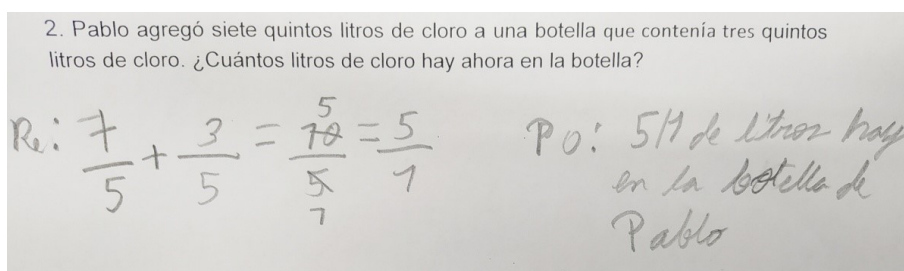 2. Pablo agregó siete quintos litros de cloro a una botella que contenía tres quintos
litros de cloro. ¿Cuántos litros de cloro hay ahora en la botella?
Re: 7/5 + 3/5 = 10/5 = 5/1
5
1
Po: 5/1 de litros hay
en la botella de
Pablo